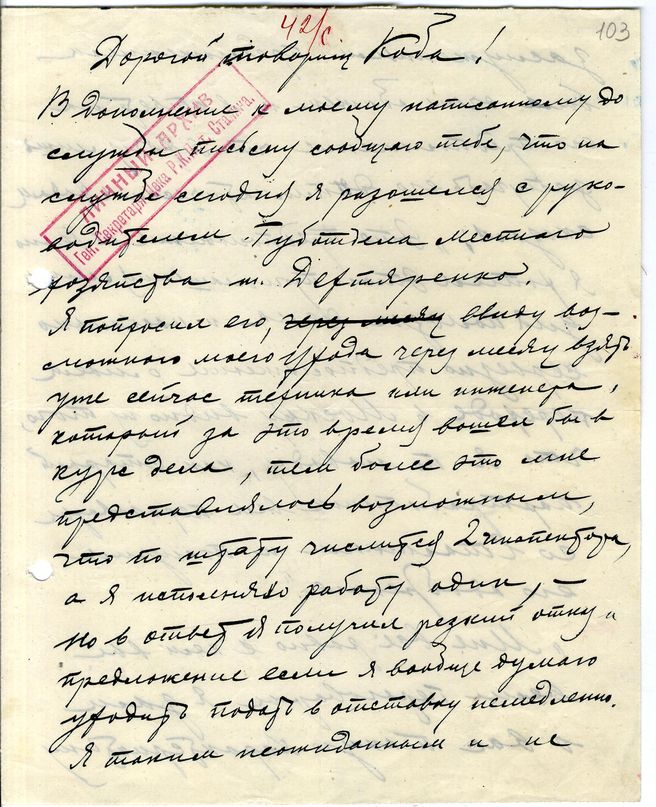 42/с
103
Дорогой товарищ Коба!
ЛИЧНЫЙ АРХИВ
Ген. Секретаря Цека Р.К.П. т. Сталина.
В дополнение к моему написанному до
службы письму сообщаю тебе, что на
службе сегодня я разошелся с руко-
водителем Губотдела местного
хозяйства т. Дегтяренко.
Я попросил его, через месяц ввиду воз-
можного моего ухода через месяц взять
уже сейчас техника или инженера,
который за это время вошел бы в
курс дела, тем более это мне
представлялось возможным,
что по штату числится 2 инспектора,
а я исполняю работу один, –
но в ответ я получил резкий отказ и
предложение если я вообще думаю
уходить подать в отставку немедленно.
Я таким неожиданным и не